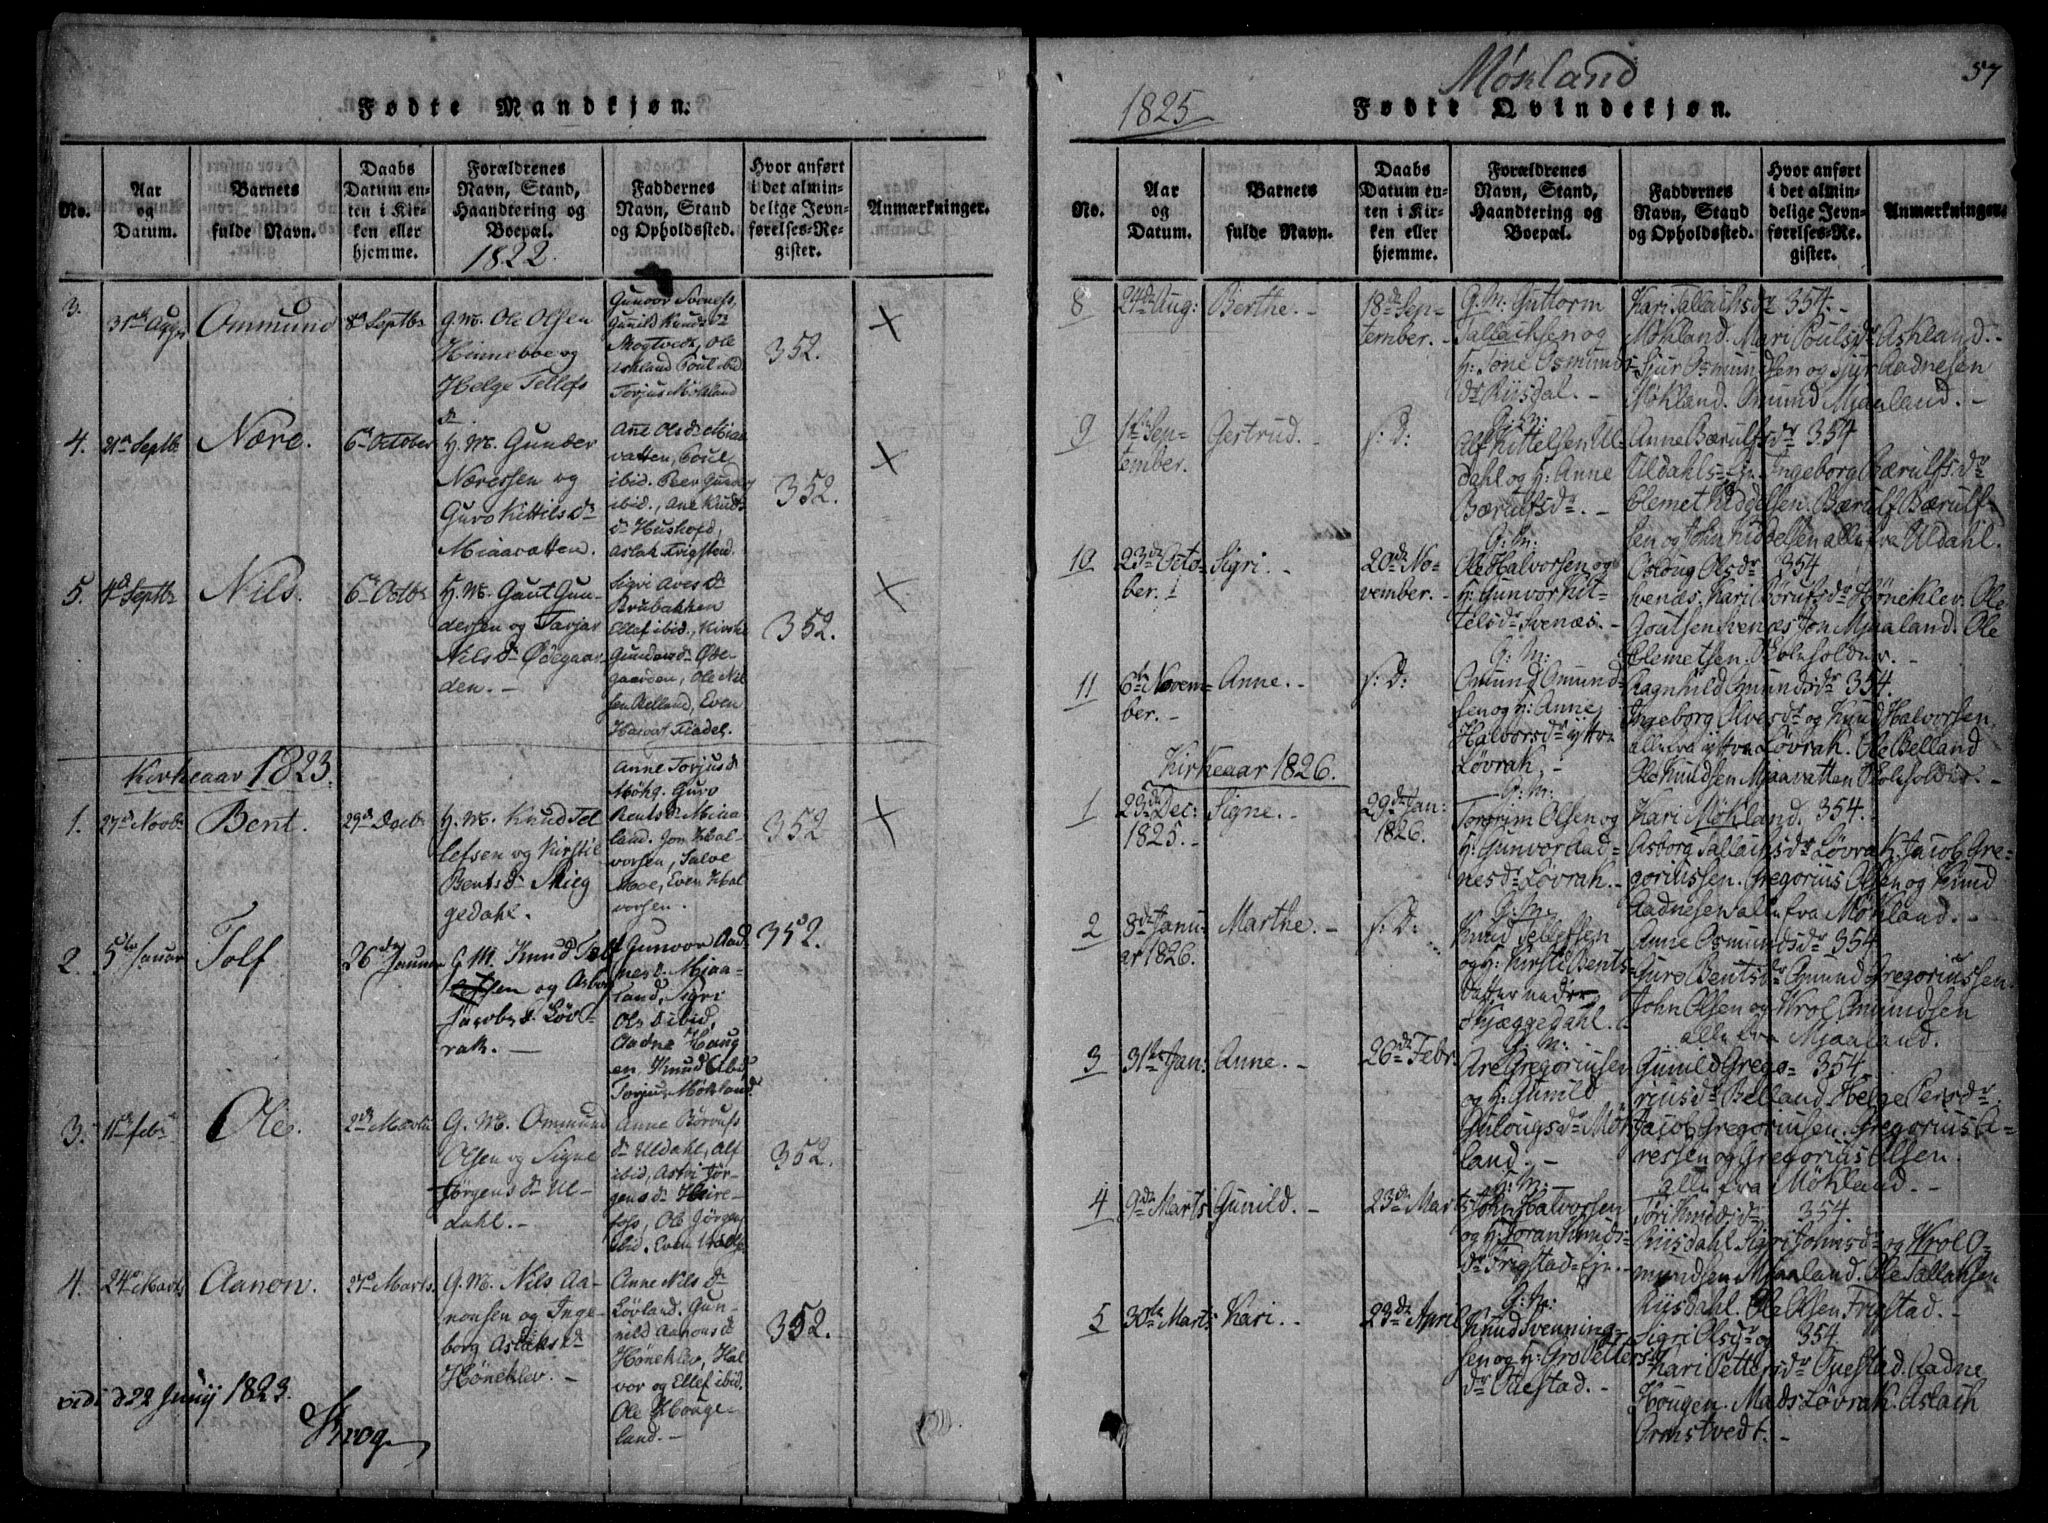 Fødte Mandkjøn.
No.
Aar
og
Datum.
Barnets
fulde Navn.
Daabs
Datum en-
ten i Kir-
ken eller
hjemme.
Forældrenes
Navn, Stand,
Haandtering og
Boepæl.
1822
Faddernes
Navn, Stand
og Opholdssted.
Hvor anført
i det almin-
delige Jevn-
førelses-Re-
gister.
Anmærkninger.
3.
Ommund
8de Septbr
G. M. Ole Olsen
Hinneboe og
Helge Tellefs
dr
Gunild Knudsdr
Ole
Askland Poul ibid
Torjus Møkland
352.
4.
21de Septbr
Nære.
6te October
G. M. Gunder
Næressen og
Guro Kittilsdr
Miaavatten.
Ane Olsdr Miaa-
vatten, Poul
ibid. Peer
ibid., Ane Knuds
dr
Aslak Frigsted.
352.
5.
Septbr
Nils.
6te Octbr
G. M. Gaut Gun-
dersen og Tarjer
Nilsdr Ødegaar-
den.-
Sigri Avesdr
Brubakken
Ellef ibid.,
Gundersdr Øde-
gaarden, Ole Nil
sen Kelland, Even
352.
Kirkeaar 1823.
1.
27de Novbr
Bent.
29de Decbr
G. M. Knud Tel
lefsen og Kirstie
Bentsdr Skieg
gedahl.
Anne Torjusdr
Guro
Bentsdr Miaa-
land. Jon Hal-
vorsen, Salve
Moe, Even Hal
vorsen.
352
2.
5te Januar
Tolf
26de Januar
G. M. Knud Tel
lefsen og Asbor
Jacobsdr Løv-
rak.-
Gunvor Aad
nesdr Miaa-
land, Sigri
Olsdr ibid,
Aadne Haug
en. Knud ibid,
Torjus Møkland
352.
3.
11te Febr
Ole.
2de Marti
G. M. Ommund
Olsen og Signe
Jørgensdr Ul-
dahl.-
Anne Børufs
dr Uldahl, Alf
ibid, Astri Jør-
gensdr Heire-
foss, Ole Jørgens
ibid. Even
352.
4.
24de Marts
Aanon.
27de Marts.
G. M. Nils Aa-
nonsen og Inge-
borg Aslaksdr
Hønekløv.-
Anne Nilsdr
Løvland. Gun-
nild Aanonsdr
Hønekløv, Hal
vor og Ellef ibid.
Ole Houge-
land.-
352.
vidi d 22 Junij 1823.
Krog
Møkland
57
1825
Fødte Qvindekjøn.
No.
Aar
og
Datum.
Barnets
fulde Navn.
Daabs
Datum en-
ten i Kir-
ken eller
hjemme.
Forældrenes
Navn, Stand,
Haandtering og
Boepæl.
Faddernes
Navn, Stand
og Opholdssted.
Hvor anført
i det almin-
delige Jevn-
førelses-Re-
gister.
Anmærkninger.
8
24de Aug:
Berthe.-
18de Sep-
tember.-
G. M: Guttorm
Tallachsen og
H: Tone Osmunds
dr Riisdal.-
Kari Tallachsdr 354.
Møkland. Mari Poulsdr Askland.-
Sjur Osmundsen og Sjur Aadnesen
Møkland. Omund Mjaaland.-
9
1ste Sep-
tember.
Gertrud.-
s: D:
G: M:
Alf Kittelsen Ul-
dahl og H: Anne
Bærulfsdr.-
Anne Bærulfsdr 354
Uldahls-eje. Ingeborg Bærulfsdr
Clemet Kiddelsen. Bærulf Bærulf-
sen og John Kiddelsen alle fra Uldahl.
10
23de Octo-
ber.
Sigri.-
20de No-
vember.-
G: M:
Ole Halvorsen og
H: Gunvor Kit-
telsdr Svenæs.-
Oslaug Olsdr 354
Svenæs. Kari Børufsdr Hønekløv. Ole
Goutsen Svenæs Jon Mjaaland. Ole
Clemetsen. Skoleholder.-
11
6te Novem-
ber.-
Anne.-
s: D:
G: M:
Omund Omund-
sen og H: Anne
Halvorsdr yttre
Løvrak.-
Ragnhild Omundsdr 354.
Ingeborg Olvesdr og Knud Halvorsen
alle fra yttre Løvrak. Ole Belland
Ole Knudsen Mjaavatten Skoleholder.-
Kirkeaar 1826.
1
23de Dec:
1825.-
Signe.-
29de Jan:
1826.
G: M:
Torgrim Olsen og
H: Gunvor Aad-
nesdr Løvrak.-
Kari Møkland. 354.
Asborg Tallachsdr Løvrak Jacob Gre-
goriussen. Gregorius Olsen og Knud
Aadnesen alle fra Møkland.-
2
8de Janu-
ar 1826.
Marthe.-
s: D:
G: M:
Knud Tellefsen
og H: Kirsti Bents-
datter nedre
Skjæggedahl.
Anne Osmundsdr 354
Guro Bentsdr Omund Gregoriussen.
John Olsen og Wrol Omundsen
alle fra Mjaaland.
3
31te Jan:
Anne.-
26de Febr
G: M:
Are Gregoriusen
og H: Gunild
Gulougsdr Møk-
land.-
Gunild Grego- 354.
riusdr Belland Helge Persdr
Jacob Gregoriusen. Gregorius A-
ressen og Gregorius Olsen.
alle fra Møkland.-
4
9de Marts
Gunild.-
23de Marts
G: M:
John Halvorsen
og H: Joran Knuds-
dr Frigstad-Eje.-
Tori Knudsdr 354.
Riisdahl Sigri Johnsdr og Wrol O-
mundsen Mjaaland. Ole Tallaksen
Riisdahl. Ole Olsen Frigstad.-
5
30te Marts
Kari.-
23de April
G: M:
Knud Svenning-
sen og H: Gro Petters
dr Ouestad.-
Sigri Olsdr og 354
Kari Pettersdr Ouestad. Aadne
Hougen. Mads Løvrak. Aslach
Ormstvedt.-